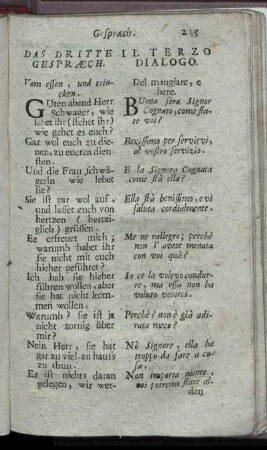 Gespræch. 215
DAS DRITTE
GESPRÆCH.
Vom essen, und trin-
cken.
GUten abend Herr
Schwager, wie
ist er ihr (stehet ihr)
wie gehet es euch?
Gar wol euch zu die-
nen, zu eueren dien-
sten.
Und die Frau schwä-
gerin wie lebet
sie?
Sie ist gar wol auf,
und lasset euch von
hertzen (hertz-
iglich) grüssen.
Es erfreuet mich;
warumb habet ihr
sie nicht mit euch
hieher geführet?
Ich hab sie hieher
führen wollen, aber
sie hat nicht kom-
men wollen.
Warumb? sie ist ja
nicht zornig über
mir?
Nein Herr, sie hat
gar zu viel zu hauss
zu thun.
Es ist nichts daran
gelegen, wir wer-
IL TERZO
DIALOGO.
Del mangiare, e
bere.
BUona sera Signor
Cognato, come sta-
te voi?
Benissimo per servirvi,
al vostro servizio.
E la Signora Cognata
come stà ella?
Ella stà benissimo, e vi
saluta cordialmente.
Me ne rallegro; perchè
non l' avete menata
con voi quà?
Io ce la volevo condur-
re, ma essa non ha
voluto venirci.
Perchè? non è già adi-
rata meco?
Nò Signore, ella ha
troppo da fare a ca-
sa.
Non importa niente,
noi potremo stare al-
den